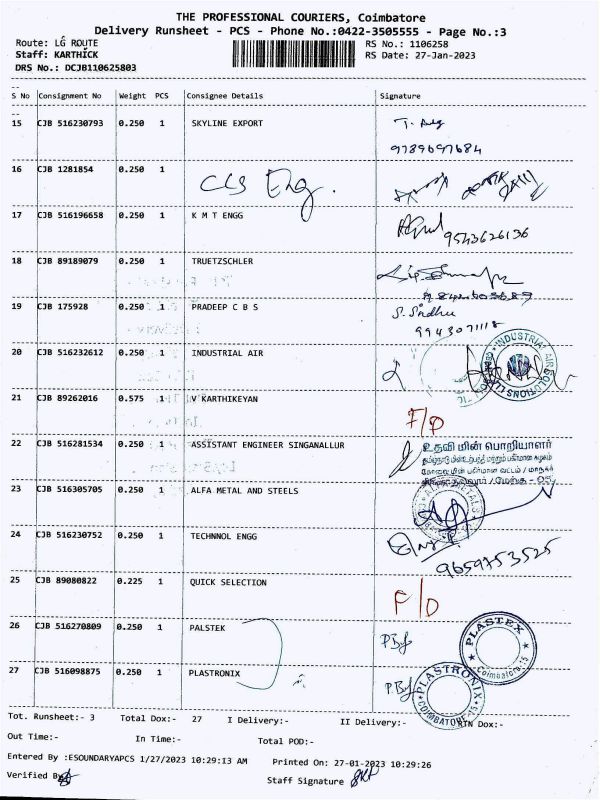 THE PROFESSIONAL COURIERS, Coimbatore
Delivery Runsheet - PCS - Phone No.:0422-3505555 - Page No.:3
Route: LG ROUTE
RS No.: 1106258
Staff: KARTHICK
RS Date: 27-Jan-2023
DRS No.: DCJB110625803
S No Consignment No Weight PCS Consignee Details Signature
15 CJB 516230793 0.250 1 SKYLINE EXPORT
9789697684
16 CJB 1281854 0.250 1 CLS Eng.
17 CJB 516196658 0.250 1 K M T ENGG
9543626136
18 CJB 89189079 0.250 1 TRUETZSCHLER
19 CJB 175928 0.250 1 PRADEEP C B S S. Sindhu
9943071118
20 CJB 516232612 0.250 1 INDUSTRIAL AIR
INDUSTRIAL AIR SOLUTIONS
21 CJB 89262016 0.575 1 V KARTHIKEYAN F/D
22 CJB 516281534 0.250 1 ASSISTANT ENGINEER SINGANALLUR
உதவி மின் பொறியாளர்
23 CJB 516305705 0.250 1 ALFA METAL AND STEELS
24 CJB 516230752 0.250 1 TECHNNOL ENGG
9659753525
25 CJB 89080822 0.225 1 QUICK SELECTION F/D
26 CJB 516270809 0.250 1 PALSTEK
PLASTEX
Coimbatore-15
27 CJB 516098875 0.250 1 PLASTRONIX
PLASTRONIX
COIMBATORE-15
Tot. Runsheet:- 3 Total Dox:- 27 I Delivery:- II Delivery:- RTN Dox:-
Out Time:- In Time:- Total POD:-
Entered By :ESOUNDARYAPCS 1/27/2023 10:29:13 AM Printed On: 27-01-2023 10:29:26
Verified By
Staff Signature